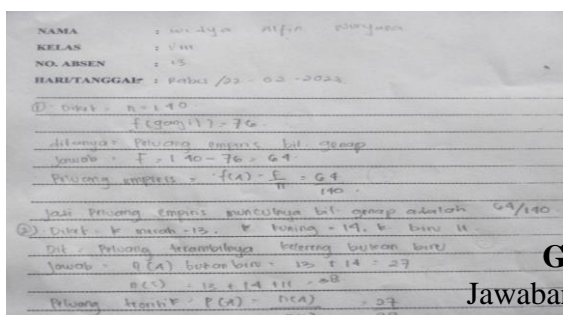 NAMA : Widya Alfin Wuryana
KELAS : VIII
NO. ABSEN : 13
HARI/TANGGAL : Rabu /22 - 02 - 2023
① Diket = n = 140
f (ganjil) = 76.
ditanya = Peluang empiris bil. genap
Jawab = f = 140 - 76 = 64.
Peluang empiris = f(A) = f/n = 64/140
Jadi Peluang empiris munculnya bil. genap adalah 64/140
② Diket = k merah = 13. k kuning = 14. k biru 11
Dit = Peluang terambilnya kelereng bukan biru
Jawab = n (A) bukan biru = 13 + 14 = 27
n (S) = 13 + 14 + 11 = 38
Peluang teoritik = P (A) = n(A) = 27
G
Jawaban